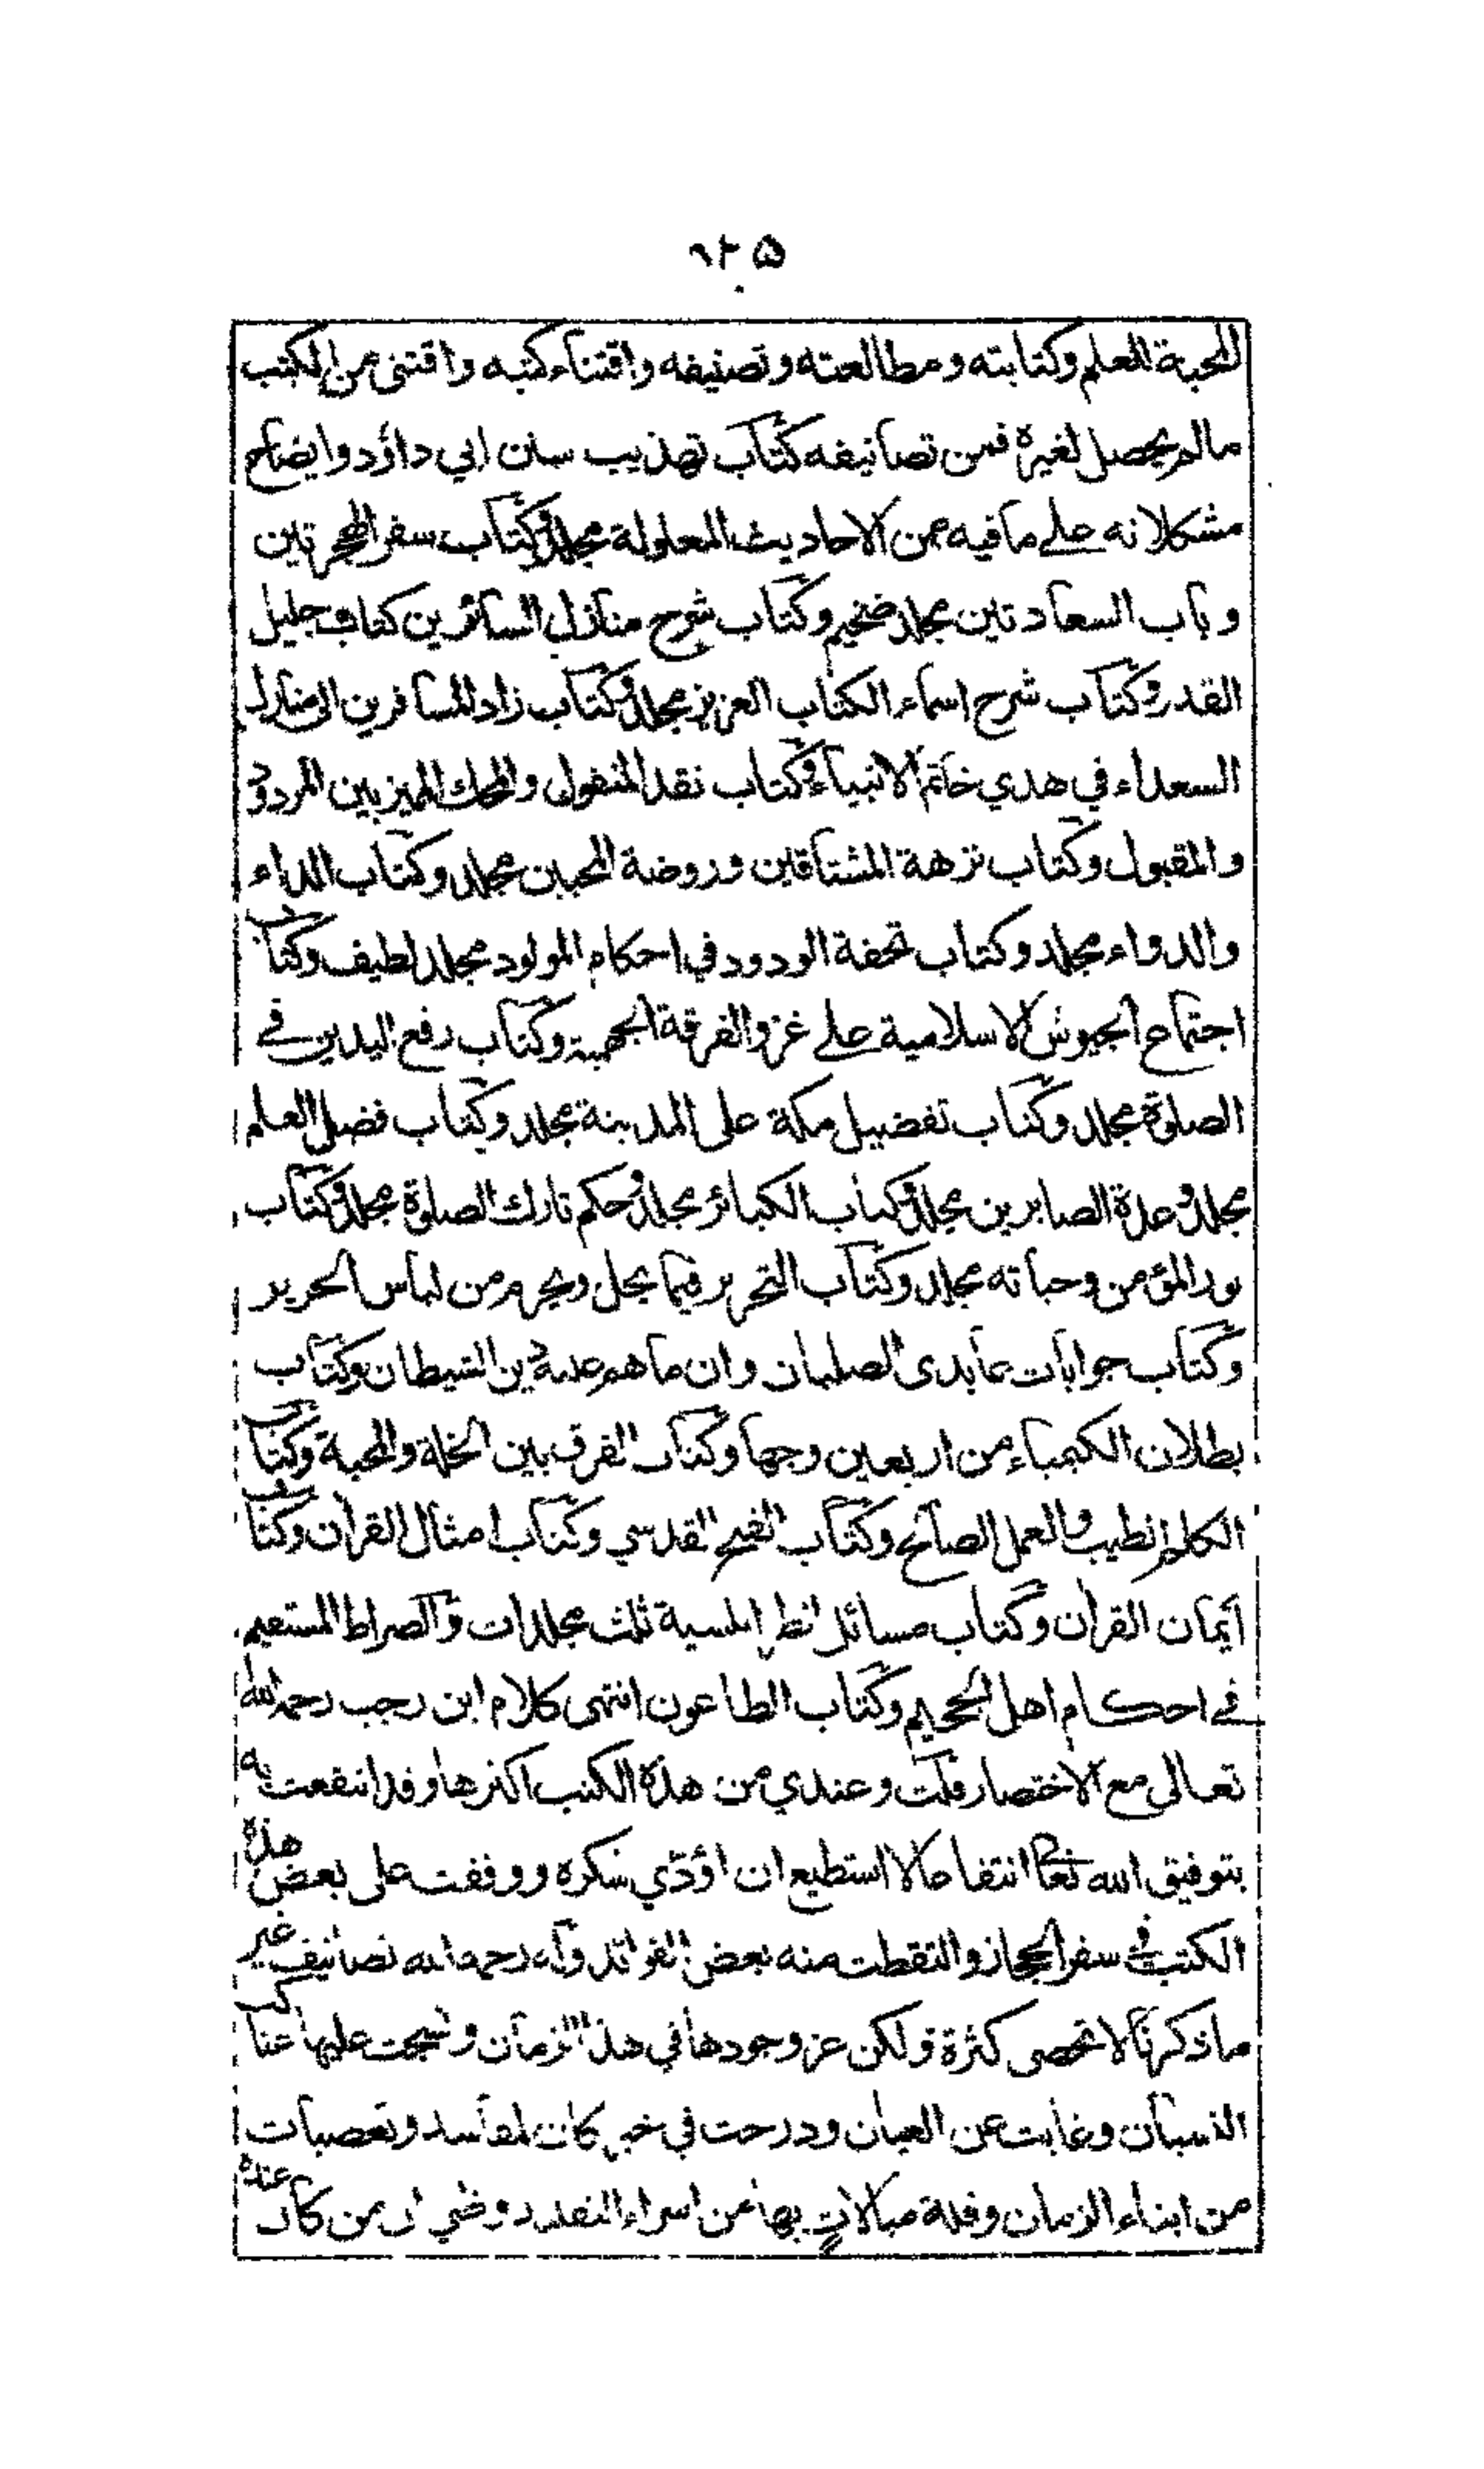 ٩٢٥
المحبة للعلم وكتابته ومطالعته وتصنيفه واقتناء كتبه واقتنى من الكتب
مالم يحصل لغيرة فمن تصانيفه كتاب تهذيب سنن ابي داؤد وايضاح
مشكلاته على مافيه من الاحاديث المعلولة مجلد وكتاب سفر الهجرتين
وباب السعادتين مجلد ضخيم وكتاب شرح منازل السائرين كتاب جليل
القدر وكتاب شرح اسماء الكتاب العزيز مجلد وكتاب زاد المسافرين الى منازل
السعداء في هدي خاتم الانبياء وكتاب نقد المنقول والمحك المميز بين المردود
والمقبول وكتاب نزهة المشتاقين وروضة المحبين مجلد وكتاب الداء
والدواء مجلد وكتاب تحفة الودود في احكام المولود مجلد لطيف وكتاب
اجتماع الجيوش الاسلامية على غزو الفرقة الجهمية وكتاب رفع اليدين في
الصلوة مجلد وكتاب تفضيل مكة على المدينة مجلد وكتاب فضل العلم
مجلد وعدة الصابرين مجلد وكتاب الكبائر مجلد وحكم تارك الصلوة مجلد وكتاب
نور المؤمن وحياته مجلد وكتاب التحرير فيما يحل ويحرم من لباس الحرير
وكتاب جوابات عابدى الصلبان وان ماهم عليه دين الشيطان وكتاب
بطلان الكيمياء من اربعين وجها وكتاب الفرق بين الخلة والمحبة وكتاب
الكلم الطيب والعمل الصالح وكتاب الفتح القدسي وكتاب امثال القرأن وكتاب
أيمان القرأن وكتاب مسائل الطرابلسية ثلث مجلدات والصراط المستقيم
في احكام اهل الجحيم وكتاب الطاعون انتهى كلام ابن رجب رحمه الله
تعالى مع الاختصار قلت وعندي من هذه الكتب اكثرها وقد انتفعت به
بتوفيق الله تعا انتفاعا لا استطيع ان اؤدّي شكره ووقفت على بعض هذه
الكتب في سفر الحجاز والتقطت منه بعض الفوائد وله رحمه الله تصانيف غير
ماذكرنا لا تحصى كثرة ولكن عز وجودها في هذا الزمان ونسجت عليها عناكب
النسيان وغابت عن العيان ودرجت في خبر كان لمفاسد وتعصبات
من ابناء الزمان وقلة مبالات بها من اسراء التقليد وظني ان من كان عنده